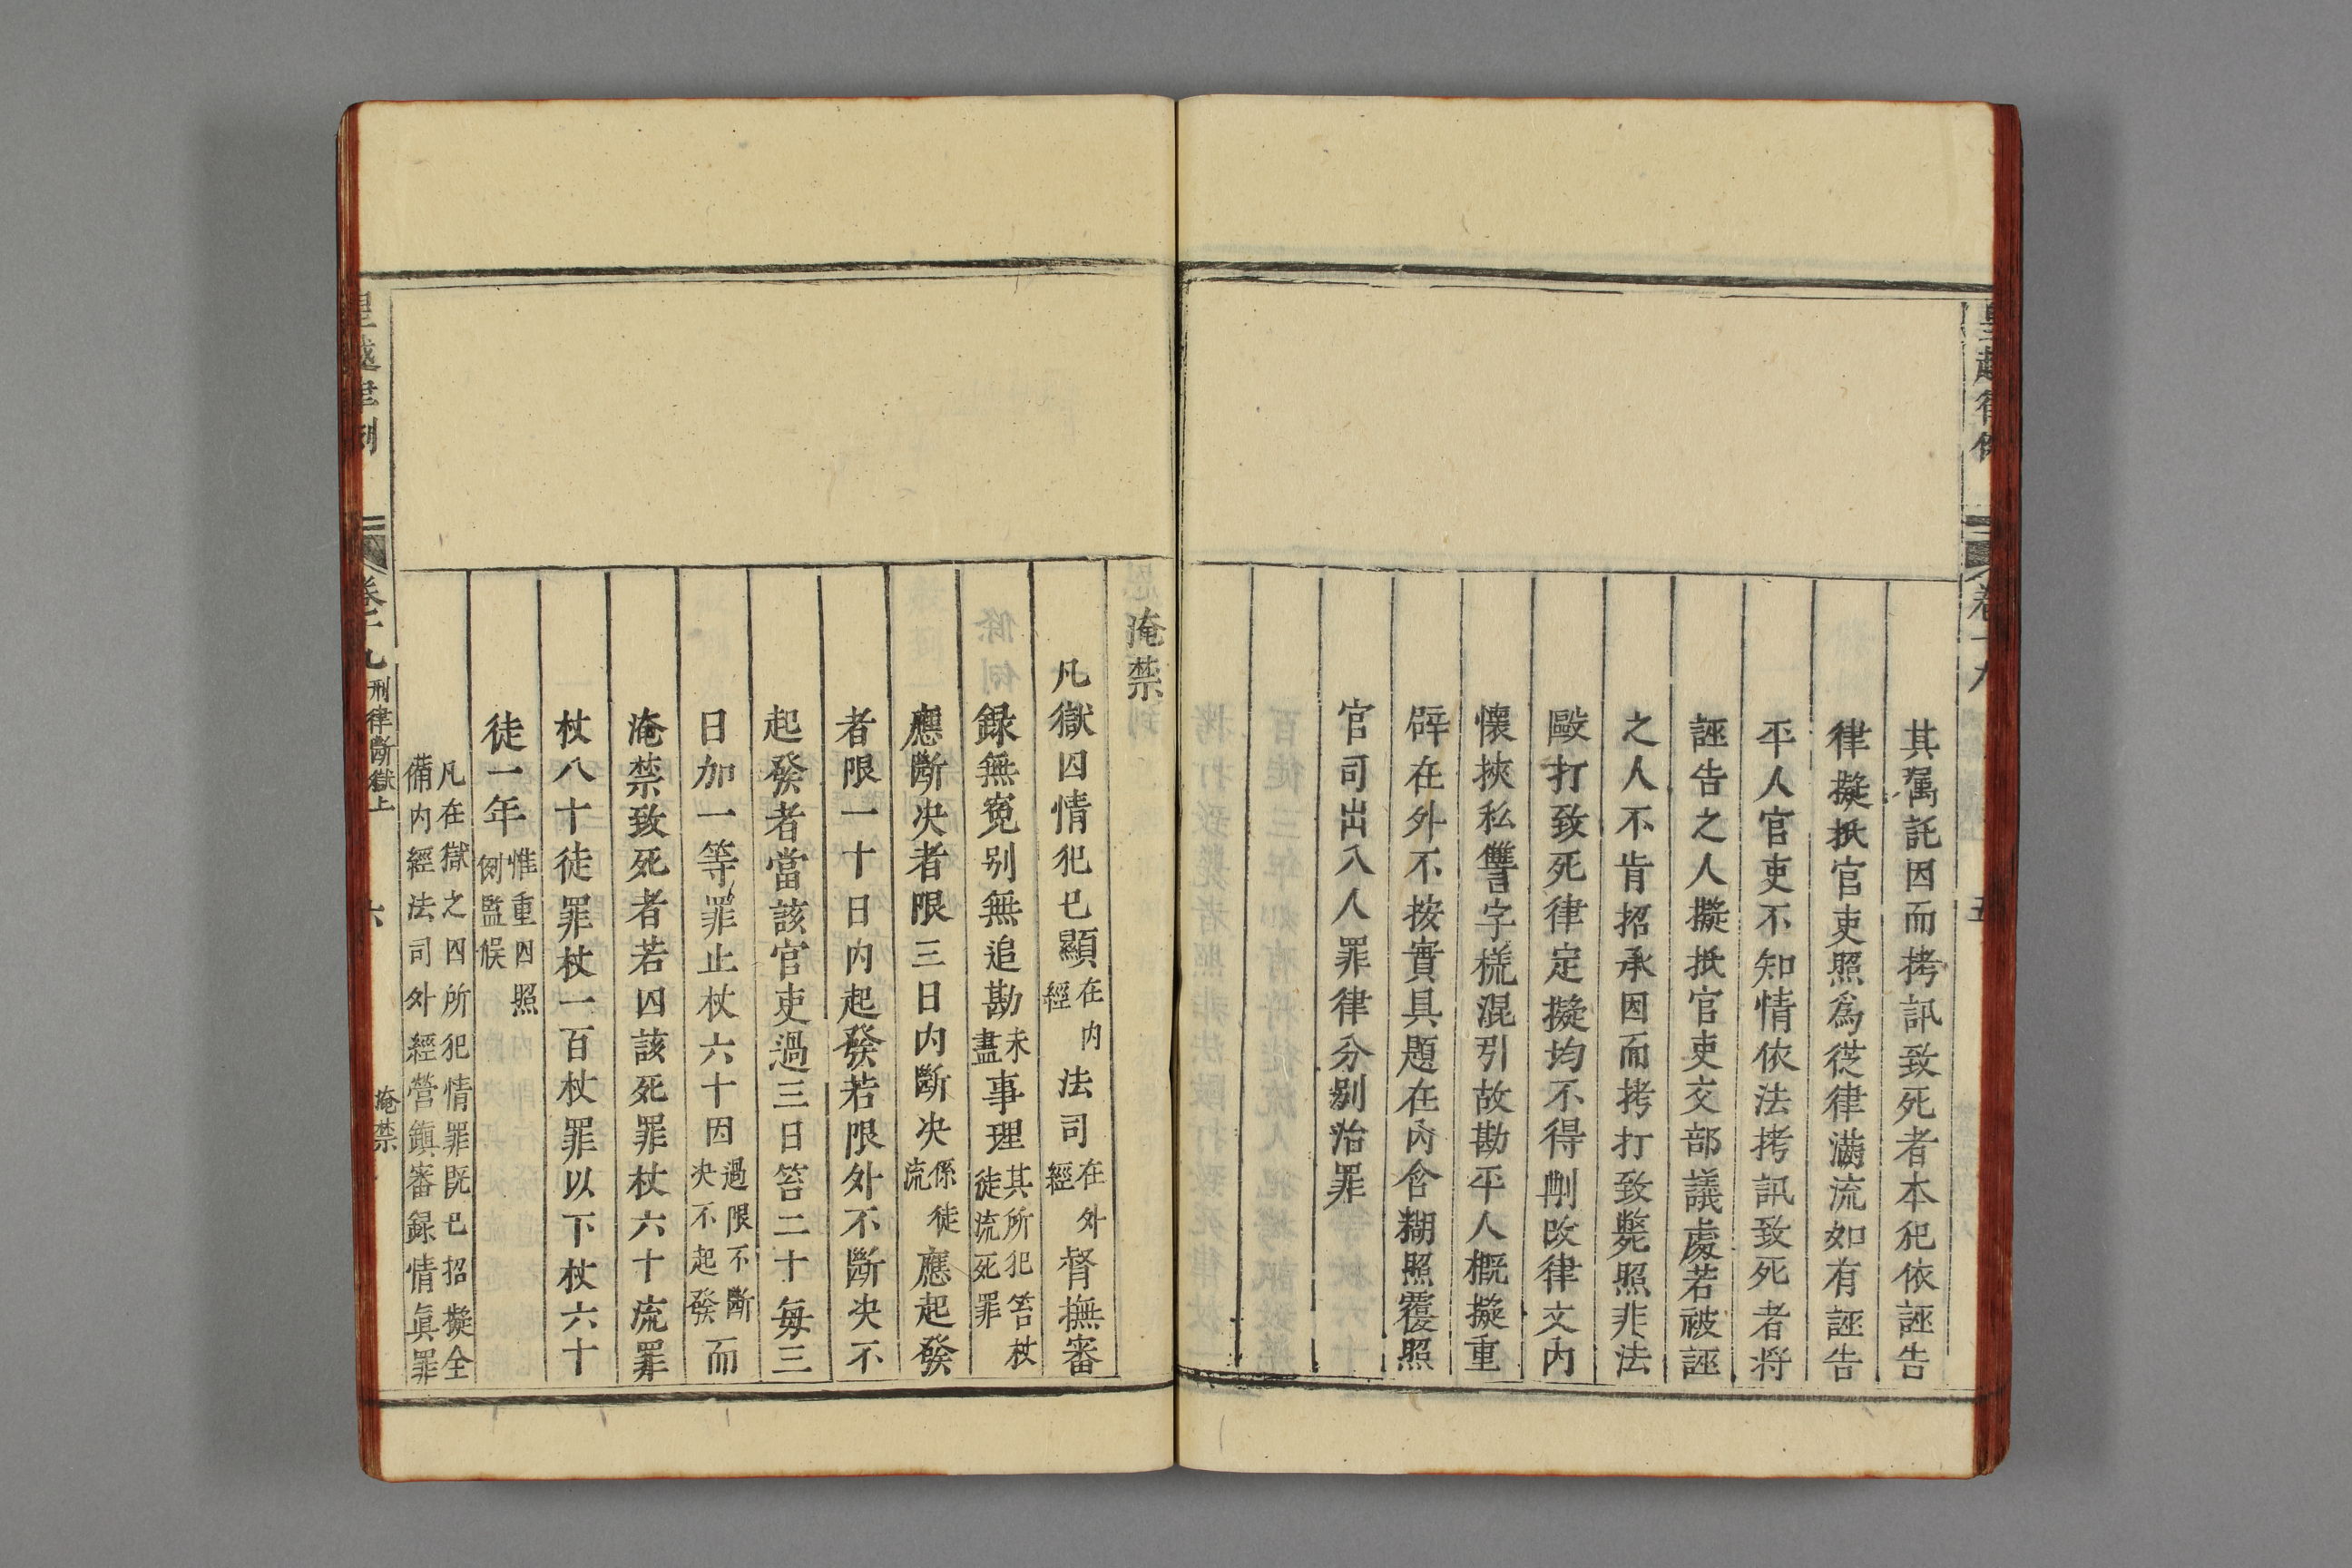 皇越律例
卷十九
五
其属託因而拷訊致死者本犯依誣告
律擬抵官吏照爲從律滿流如有誣告
平人官吏不知情依法拷訊致死者將
誣告之人擬抵官吏交部議處若被誣
之人不肯招承因而拷打致斃照非法
毆打致死律定擬均不得刪改律文内
懷挾私讐字樣混引故勘平人概擬重
辟在外不按實具題在内含糊照覆照
官司出入人罪律分别治罪
淹禁
凡獄囚情犯已顯在内經法司在外經督撫審
録無寃别無追勘未盡事理其所犯笞杖徒流死罪
應斷决者限三日内斷决係徒流應起發
者限一十日内起發若限外不斷决不
起發者當該官吏過三日笞二十每三
日加一等罪止杖六十因過限不斷决不起發而
淹禁致死者若囚該死罪杖六十流罪
杖八十徒罪杖一百杖罪以下杖六十
徒一年惟重囚照例監候
凡在獄之囚所犯情罪既已招擬全
備内經法司外經營鎮審録情眞罪
皇越律例
卷十九
刑律斷獄上
六
淹禁